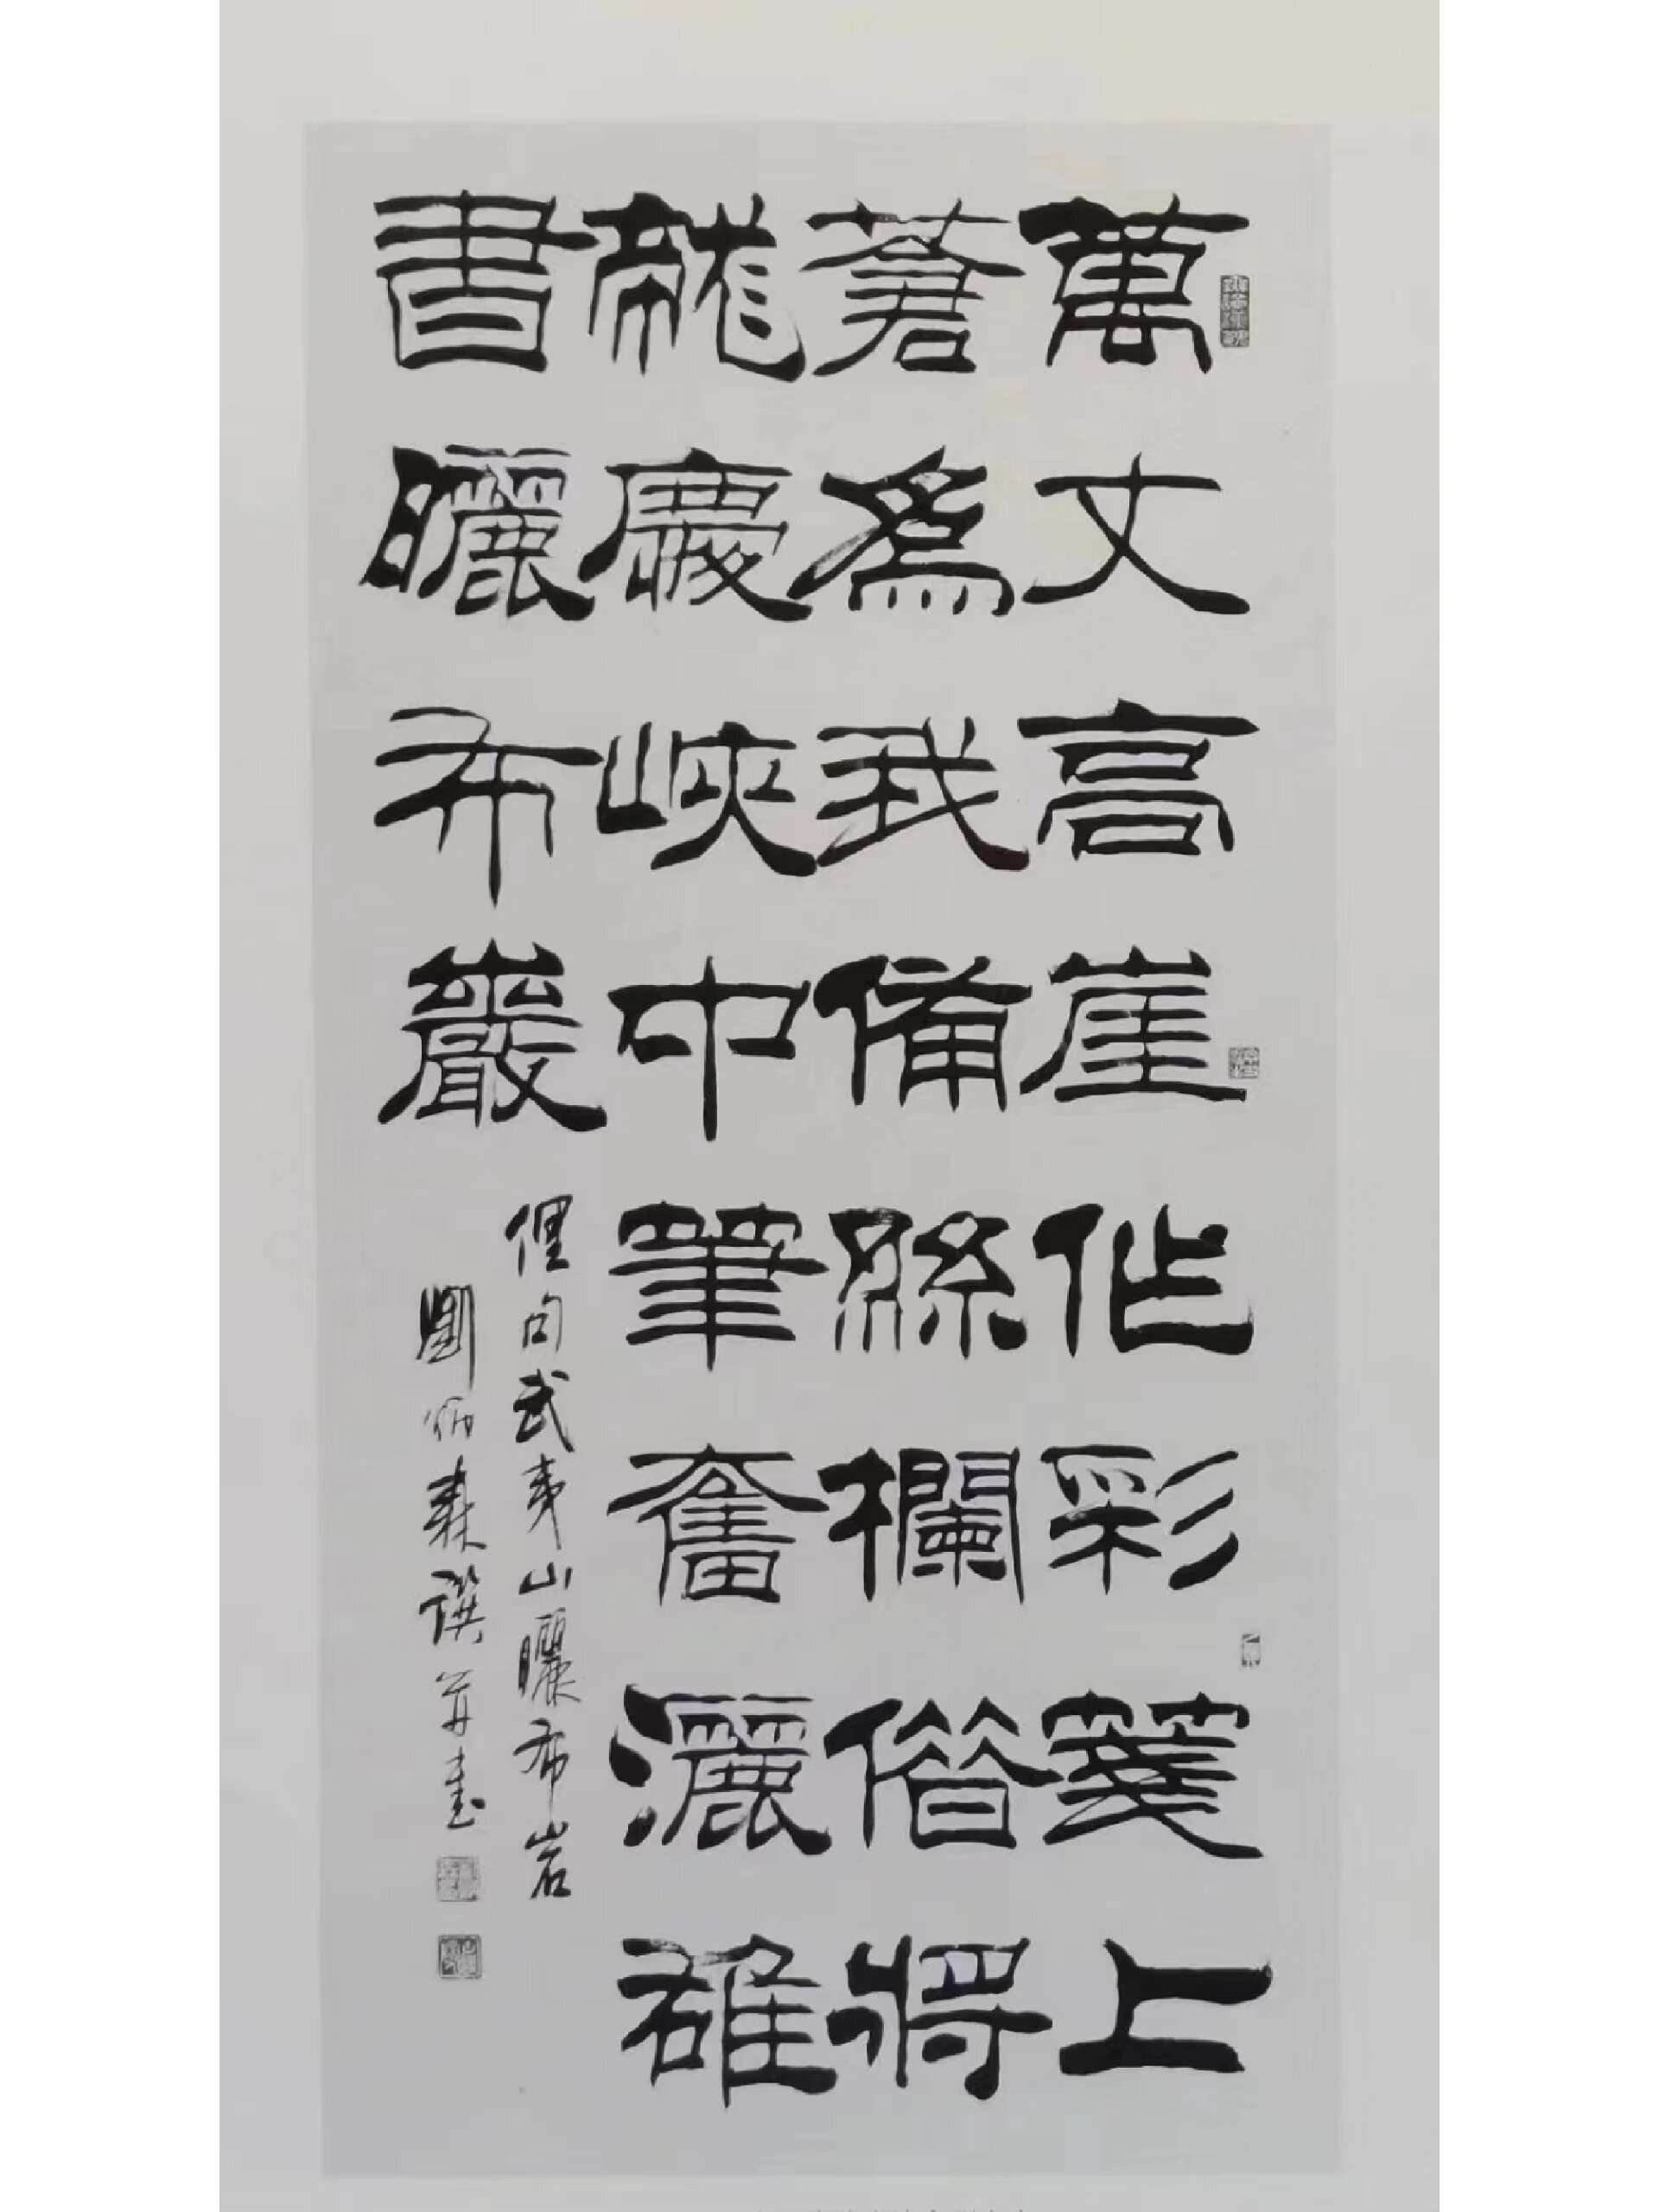 萬丈高崖作彩箋上
蒼為我備絲欄僭將
龍慶峽中筆奮灑雄
書曬布巖
俚句武夷山曬布岩
劉炳森撰并書